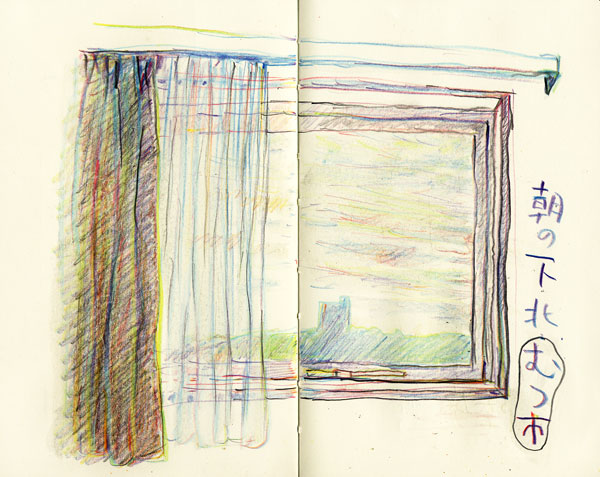 朝の下北むつ市